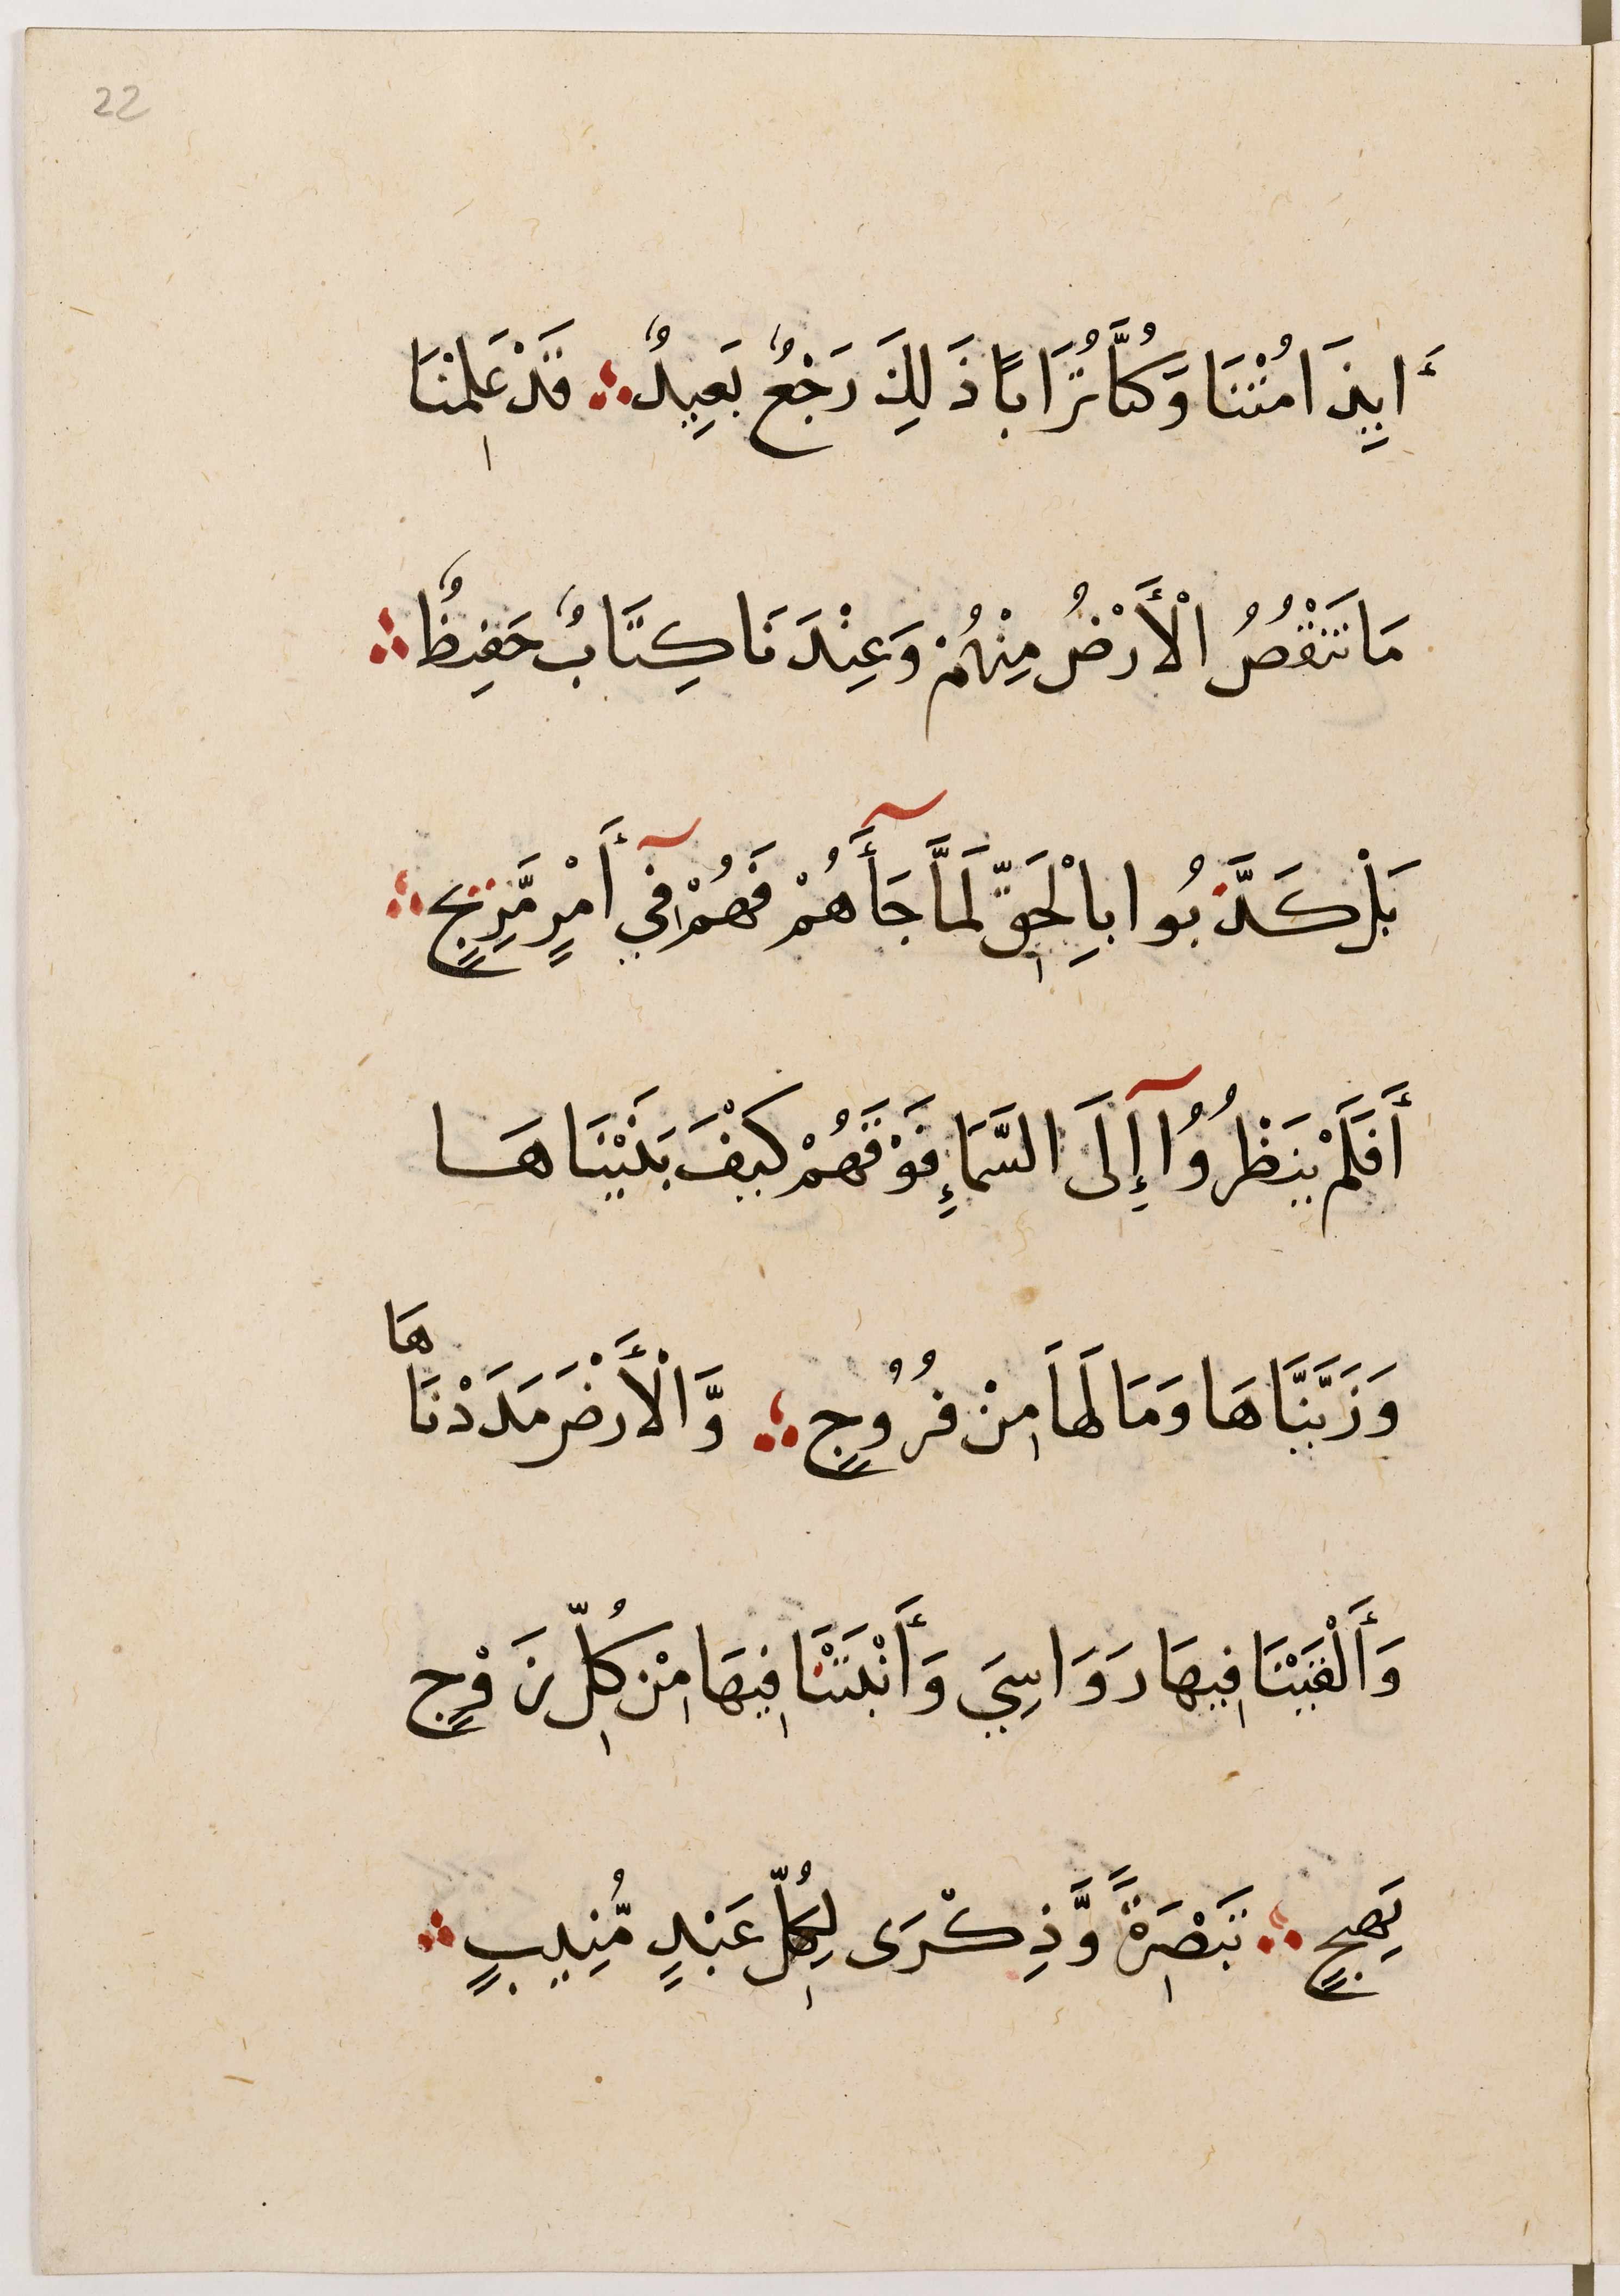 22
أَايِذَامُتْنَا وَكُنَّا تُرَابًا ذَلِكَ رَجْعٌ بَعِيدٌ ؞ قَدْ عَلِمْنَا
مَا تَنْقُصُ الْأَرْضُ مِنْهُمْ وَعِنْدَنَا كِتَابٌ حَفِيظٌ ؞
بَلْ كَذَّبُوا بِالْحَقِّ لَمَّا جَأَهُمْ فَهُمْ فِي أَمْرٍ مَّرِيجٍ ؞
أَفَلَمْ يَنظُرُوُآ إِلَى السَّمَاءِ فَوْقَهُمْ كَيْفَ بَنَيْنَاهَا
وَزَيَّنَّاهَا وَمَا لَهَا مِنْ فُرُوُجٍ ؞ وَّالْأَرْضَ مَدَدْنَاهَا
وَأَلْقَيْنَا فِيهَا رَوَاسِيَ وَأَنْبَتْنَا فِيهَا مِنْ كُلِّ زَوْجٍ
بَهِيجٍ ؞ تَبْصِرَةً وَّذِكْرَى لِكُلِّ عَبْدٍ مُّنِيبٍ ؞